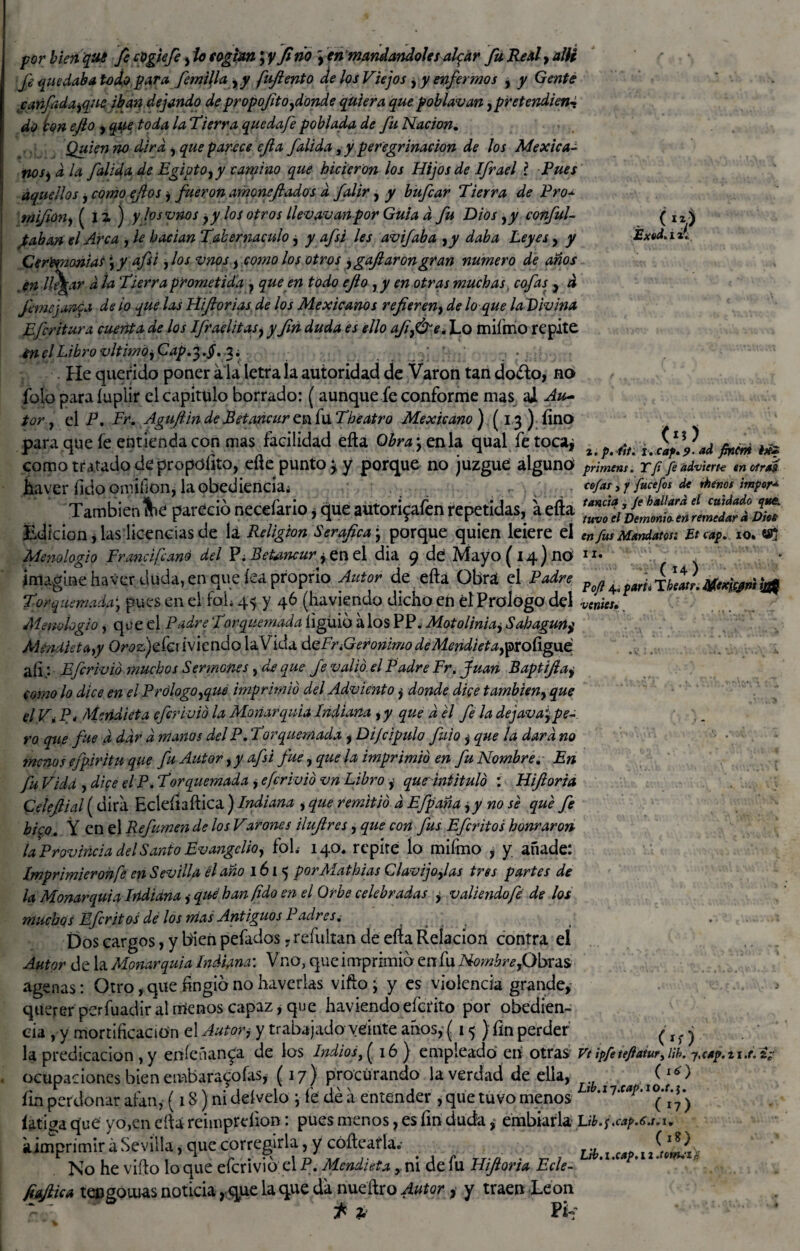 por bien que se cogiese, lo cogian; y si no, en mandandoles alçar su Real, alli
se quedaba todo para semilla, y sustento de los Viejos, y enfermos, y Gente
cansada, que iban dejando de proposito, donde quiera que poblavan, pretendien-
do con esto, que toda la Tierra quedase poblada de su Nacion.
Quien no dirà, que parece esta salida, y peregrinacion de los Mexica-
nos, à la salida de Egipto, y camino que hicieron los Hijos de Israel? Pues
aquellos, como estos, fueron amonestados à salir, y buscar Tierra de Pro-
mision, (12) y los vnos, y los otros llevavan por Guia à su Dios, y consul-
taban el Arca, le hacian Tabernaculo, y asi les avisaba, y daba Leyes, y
Ceremonias; y asi, los vnos, como los otros, gastaron gran numero de años
en llegar à la Tierra prometida, que en todo esto, y en otras muchas cosas, à
semejança de lo que las Historias de los Mexicanos refieren, de lo que la Divina
Escritura cuenta de los Israelitas, y sin duda es ello asi, &c. Lo mismo repite
en el Libro vltimo, Cap. 3. §. 3.
He querido poner à la letra la autoridad de Varon tan docto, no
solo para suplir el capitulo borrado: (aunque se conforme mas al Au-
tor, el P. Fr. Agustin de Betancur en su Theatro Mexicano) (13) sino
para que se entienda con mas facilidad esta Obra; en la qual se toca,
como tratado de proposito, este punto; y porque no juzgue alguno
haver sido omision, la obediencia.
Tambien me pareciò necesario, que autoriçasen repetidas, à esta
Edicion, las licencias de la Religion Serafica; porque quien leiere el
Menologio Franciscano del P. Betancur, en el dia 9 de Mayo (14) no
imagine haver duda, en que sea proprio Autor de esta Obra el Padre
Torquemada; pues en el fol. 45 y 46 (haviendo dicho en el Prologo del
Menologio, que el Padre Torquemada siguiò à los PP. Motolinia, Sahagun,
Mendieta, y Oroz) escriviendo la Vida de Fr. Geronimo de Mendieta, prosigue
asi: Escriviò muchos Sermones, de que se valiò el Padre Fr. Juan Baptista,
como lo dice en el Prologo, que imprimiò del Adviento, donde diçe tambien, que
el V. P. Mendieta escriviò la Monarquia Indiana, y que à èl se la dejava; pe-
ro que fue à dàr à manos del P. Torquemada, Discipulo suio, que la darà no
menos espiritu que su Autor, y asi fue, que la imprimiò en su Nombre. En
su Vida, diçe el P. Torquemada, escriviò vn Libro, que intitulò: Historia
Celestial (dirà Eclesiastica) Indiana, que remitiò à España, y no sè què se
hiço. Y en el Resumen de los Varones ilustres, que con sus Escritos honraron
la Provincia del Santo Evangelio, fol. 140. repite lo mismo, y añade:
Imprimieronse en Sevilla èl año 1615 por Mathias Clavijo, las tres partes de
la Monarquia Indiana, que han sido en el Orbe celebradas, valiendose de los
muchos Escritos de los mas Antiguos Padres.
Dos cargos, y bien pesados, resultan de esta Relacion contra el
Autor de la Monarquia Indiana: Vno, que imprimiò en su Nombre, Obras
agenas: Otro, que fingiò no haverlas visto; y es violencia grande,
querer persuadir al menos capaz, que haviendo escrito por obedien-
cia, y mortificacion el Autor, y trabajado veinte años, (15) sin perder
la predicacion, y enseñança de los Indios, (16) empleado en otras
ocupaciones bien embaraçosas, (17) procurando la verdad de ella,
sin perdonar afan, (18) ni desvelo; se dè à entender, que tuvo menos
fatiga que yo, en esta reimpresion: pues menos, es sin duda, embiarla
à imprimir à Sevilla, que corregirla, y costearla.
No he visto lo que escriviò el P. Mendieta, ni de su Historia Ecle-
siastica tengo mas noticia, que la que dà nuestro Autor, y traen Leon
Pi-
(12)
Exod. 12.
(13)
2. p. tit. 1. cap. 9. ad
primens. Y si se advierte en otras
cosas, y sucesos de menos impor-
tancia, se hallarà el cuidado que
tuvo el Demonio en remedar à Dios
en sus Mandatos: Et cap. 10.
11.
(14)
Post 4. part. Theatr.
venies.
(15)
Vt ipse testatur, lib. 7. cap. 21.
(16)
Lib. 17. cap. 10. t. 3.
(17)
Lib. 5. cap. 6. t. 1.
(18)
Lib. 1. cap. 11